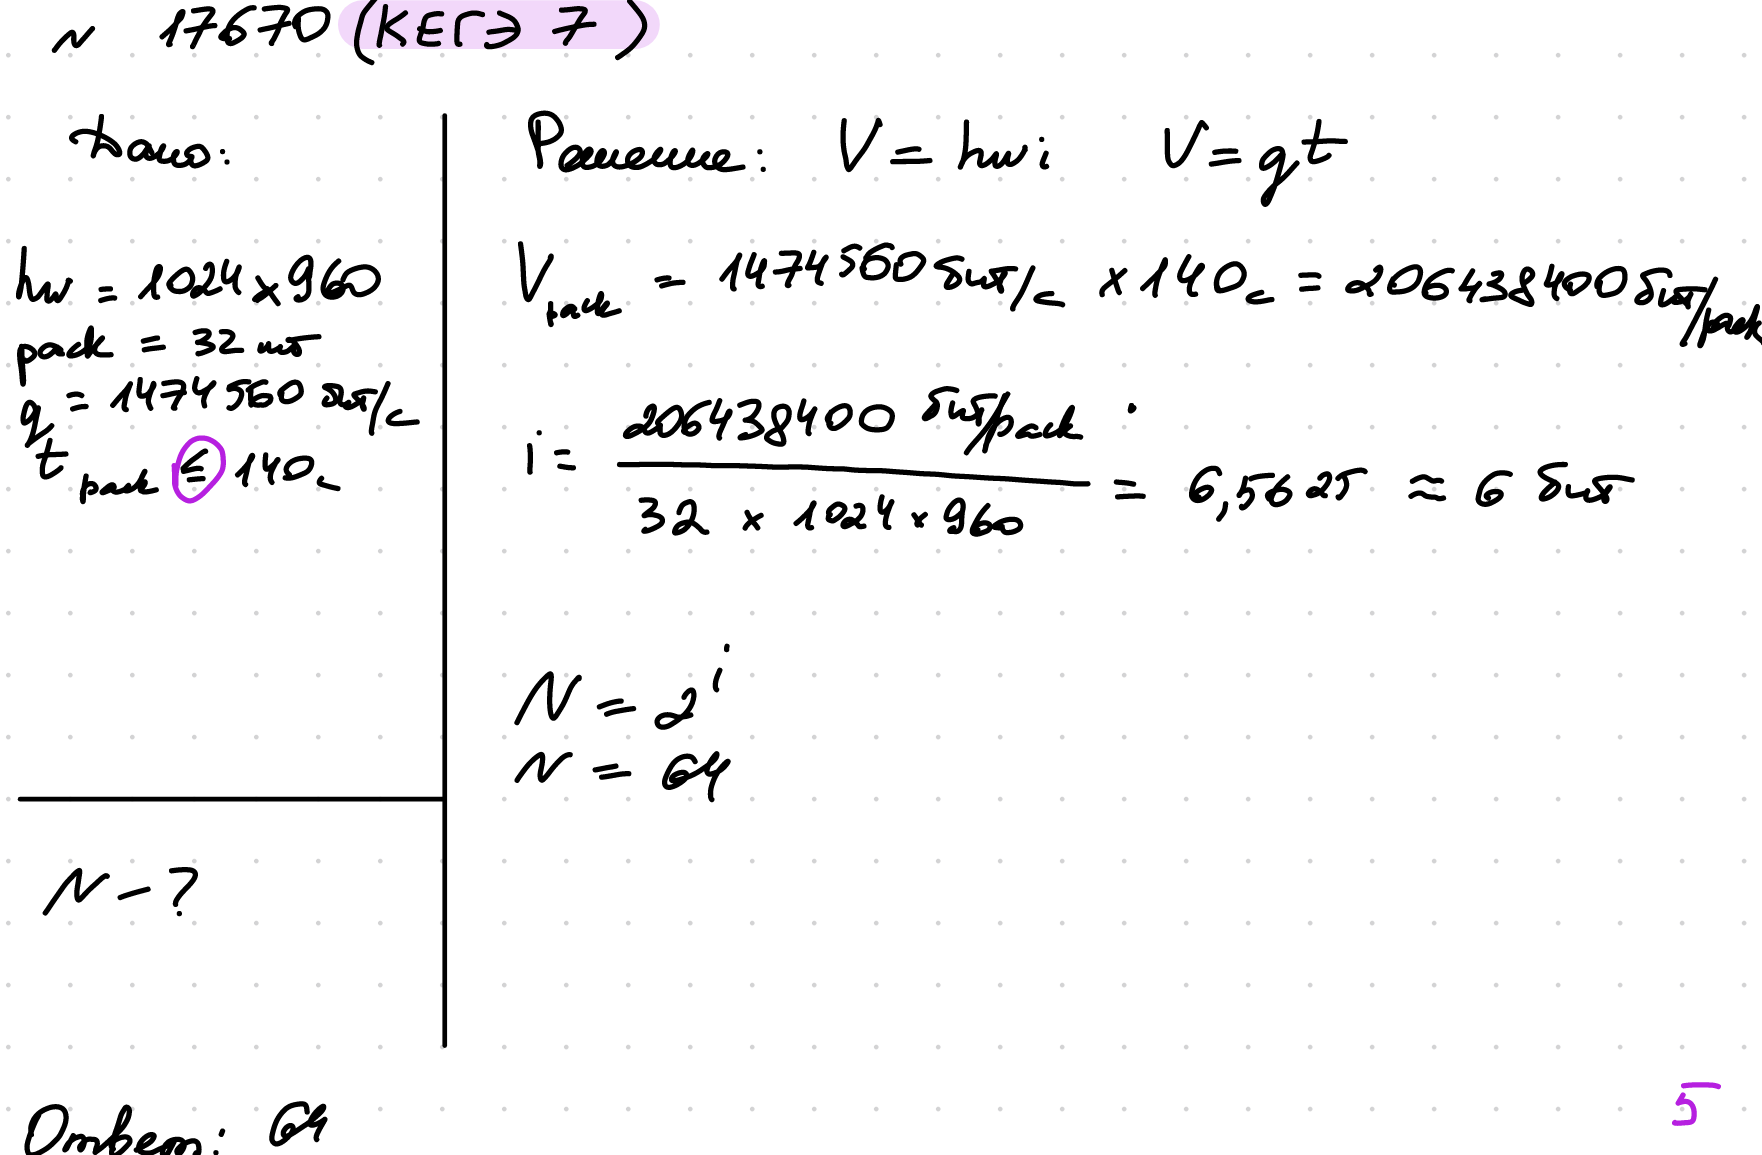 ~ 17670 (КЕГЭ 7)
Дано:
hw = 1024 x 960
pack = 32 шт
q = 1474560 бит/с
t pack ≤ 140с
N - ?
Решение: V = hwi V = qt
Vpack = 1474560 бит/с x 140с = 206438400 бит/pack
i = 206438400 бит/pack / 32 x 1024 x 960 = 6,5625 ≈ 6 бит
N = 2^i
N = 64
Ответ: 64
5